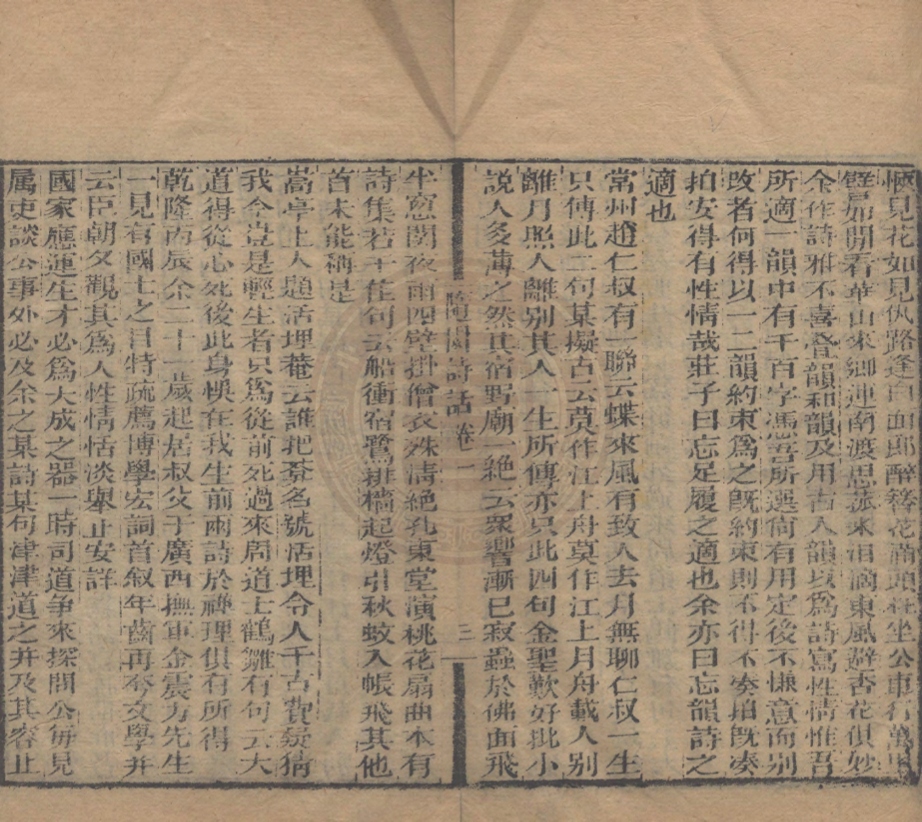 愜見花如見仇路逢白面郎醉簪花滿頭杜坐公車行萬里
譬如開看華山來鄉連南渡思菰米淚滴東風避杏花俱妙
余作詩雅不喜疊韻和韻及用古人韻以為詩寫性情惟吾
所適一韻中有千百字憑吾所選尚有用定後不慊意而別
改者何得以一二韻約束為之既約束則不得不湊拍既湊
拍安得有性情哉莊子曰忘足履之適也余亦曰忘韻詩之
適也
常州趙仁叔有一聯云蝶來風有致人去月無聊仁叔一生
只傳此二句某擬古云莫作江上舟莫作江上月舟載人別
離月照人離別其人一生所傳亦只此四句金聖歎好批小
說人多薄之然其宿野廟一絕云眾響漸已寂蟲於佛面飛
半窻關夜雨四壁掛僧衣殊清絕孔東堂演桃花扇曲本有
詩集若干佳句云船衝宿鷺排檣起燈引秋蚊入帳飛其他
首未能稱是
嵩亭上人題活埋菴云誰把菴名號活埋令人千古費疑猜
我今豈是輕生者只為從前死過來周道士鶴雛有句云大
道得從心死後此身悞在我生前兩詩於禪理俱有所得
乾隆丙辰余二十一歲起居叔父于廣西撫軍金震方先生
一見有國士之目特疏薦博學宏詞首敘年齒再夸文學并
云臣朝夕觀其為人性情恬淡舉止安詳
國家應運生才必為大成之器一時司道爭來探問公每見
属吏談公事外必及余之某詩某句津津道之并及其容止
隨園詩話 卷一
三